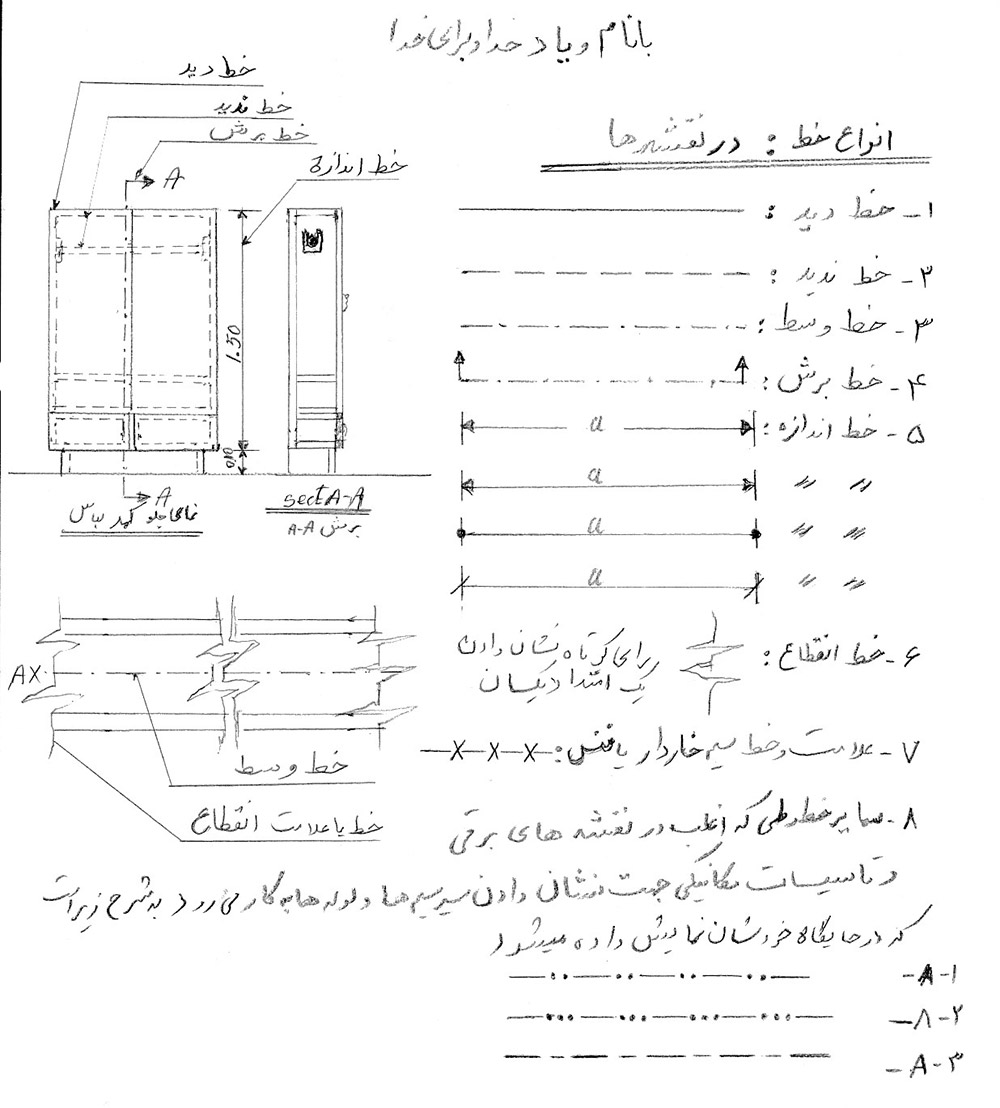 بانام و یاد خدا و برای خدا
انواع خط : در نقشه ها
۱- خط دید :
۲- خط ندید :
۳- خط وسط :
۴- خط برش :
۵- خط اندازه : a
〃 〃 a
〃 〃 a
〃 〃 a
۶- خط انقطاع :
برای کوتاه نشان دادن
یک امتداد یکسان
۷- علامت و خط سیم خاردار یا فنس : x-x-x
۸- سایر خطوطی که اغلب در نقشه های برقی
و تاسیسات مکانیکی جهت نشان دادن مسیر سیم ها و لوله ها به کار می رود به شرح زیر است
که در جایگاه خودشان نمایش داده میشود
۸-۱-
۸-۲-
۸-۳-
خط دید
خط ندید
خط برش
خط اندازه
A
1.50
0.10
A
نمای جلو کمد لباس
sect A-A
برش A-A
AX
خط وسط
خط یا علامت انقطاع